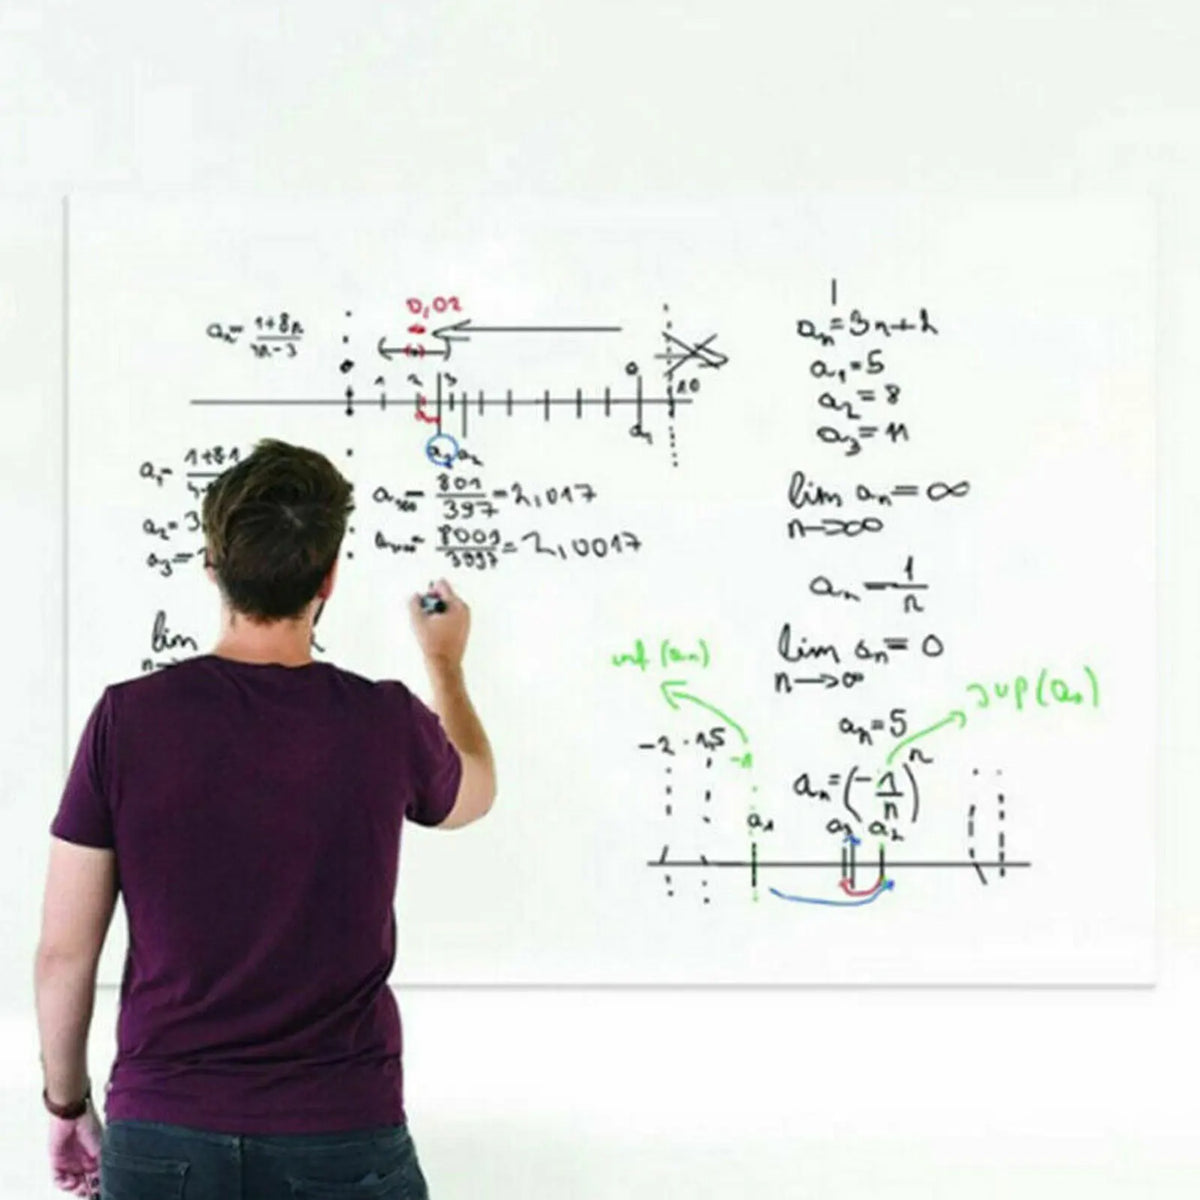 0,02
aₙ = (1+8n)/(4n-3)
1 2 3 9 10
a₃ a₂ a₁
a₁ = 1+8·1
a₂ = 3
a₃ =
a₁₀₀ = 801/397 = 2,017
a₁₀₀₀ = 8001/3997 = 2,0017
lim
n→
aₙ = 3n+2
a₁ = 5
a₂ = 8
a₃ = 11
lim aₙ = ∞
n→∞
aₙ = 1/n
lim aₙ = 0
n→∞
inf (aₙ)
sup (aₙ)
aₙ = 5
-2 -1,5 -1
aₙ = (-1/n)ⁿ
a₁ a₃ a₂